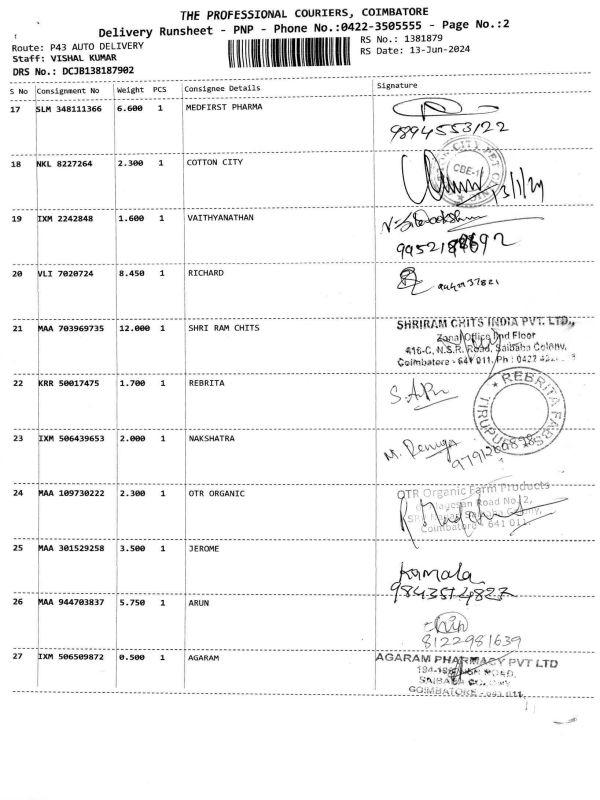 THE PROFESSIONAL COURIERS, COIMBATORE
Delivery Runsheet - PNP - Phone No.:0422-3505555 - Page No.:2
Route: P43 AUTO DELIVERY
RS No.: 1381879
Staff: VISHAL KUMAR
RS Date: 13-Jun-2024
DRS No.: DCJB138187902
S No Consignment No Weight PCS Consignee Details Signature
17 SLM 348111366 6.600 1 MEDFIRST PHARMA
9894553122
18 NKL 8227264 2.300 1 COTTON CITY
COTTON CITY PET CLINIC
CBE-11
19 IXM 2242848 1.600 1 VAITHYANATHAN
20 VLI 7020724 8.450 1 RICHARD
21 MAA 703969735 12.000 1 SHRI RAM CHITS
SHRIRAM CHITS INDIA PVT. LTD.,
Zonal Office IInd Floor
416-C, N.S.R. Road, Saibaba Colony,
Coimbatore - 641 011. Ph : 0422
22 KRR 50017475 1.700 1 REBRITA
REBRITA FABS
TIRUPUR
23 IXM 506439653 2.000 1 NAKSHATRA
M. Renuga
24 MAA 109730222 2.300 1 OTR ORGANIC
OTR Organic Farm Products
Road No.2,
Saibaba Colony,
Coimbatore - 641 011.
25 MAA 301529258 3.500 1 JEROME
Kamala
9843514827
26 MAA 944703837 5.750 1 ARUN
8122981639
27 IXM 506509872 0.500 1 AGARAM
AGARAM PHARMACY PVT LTD
NSR ROAD,
SAIBABA COLONY
COIMBATORE - 641 011.